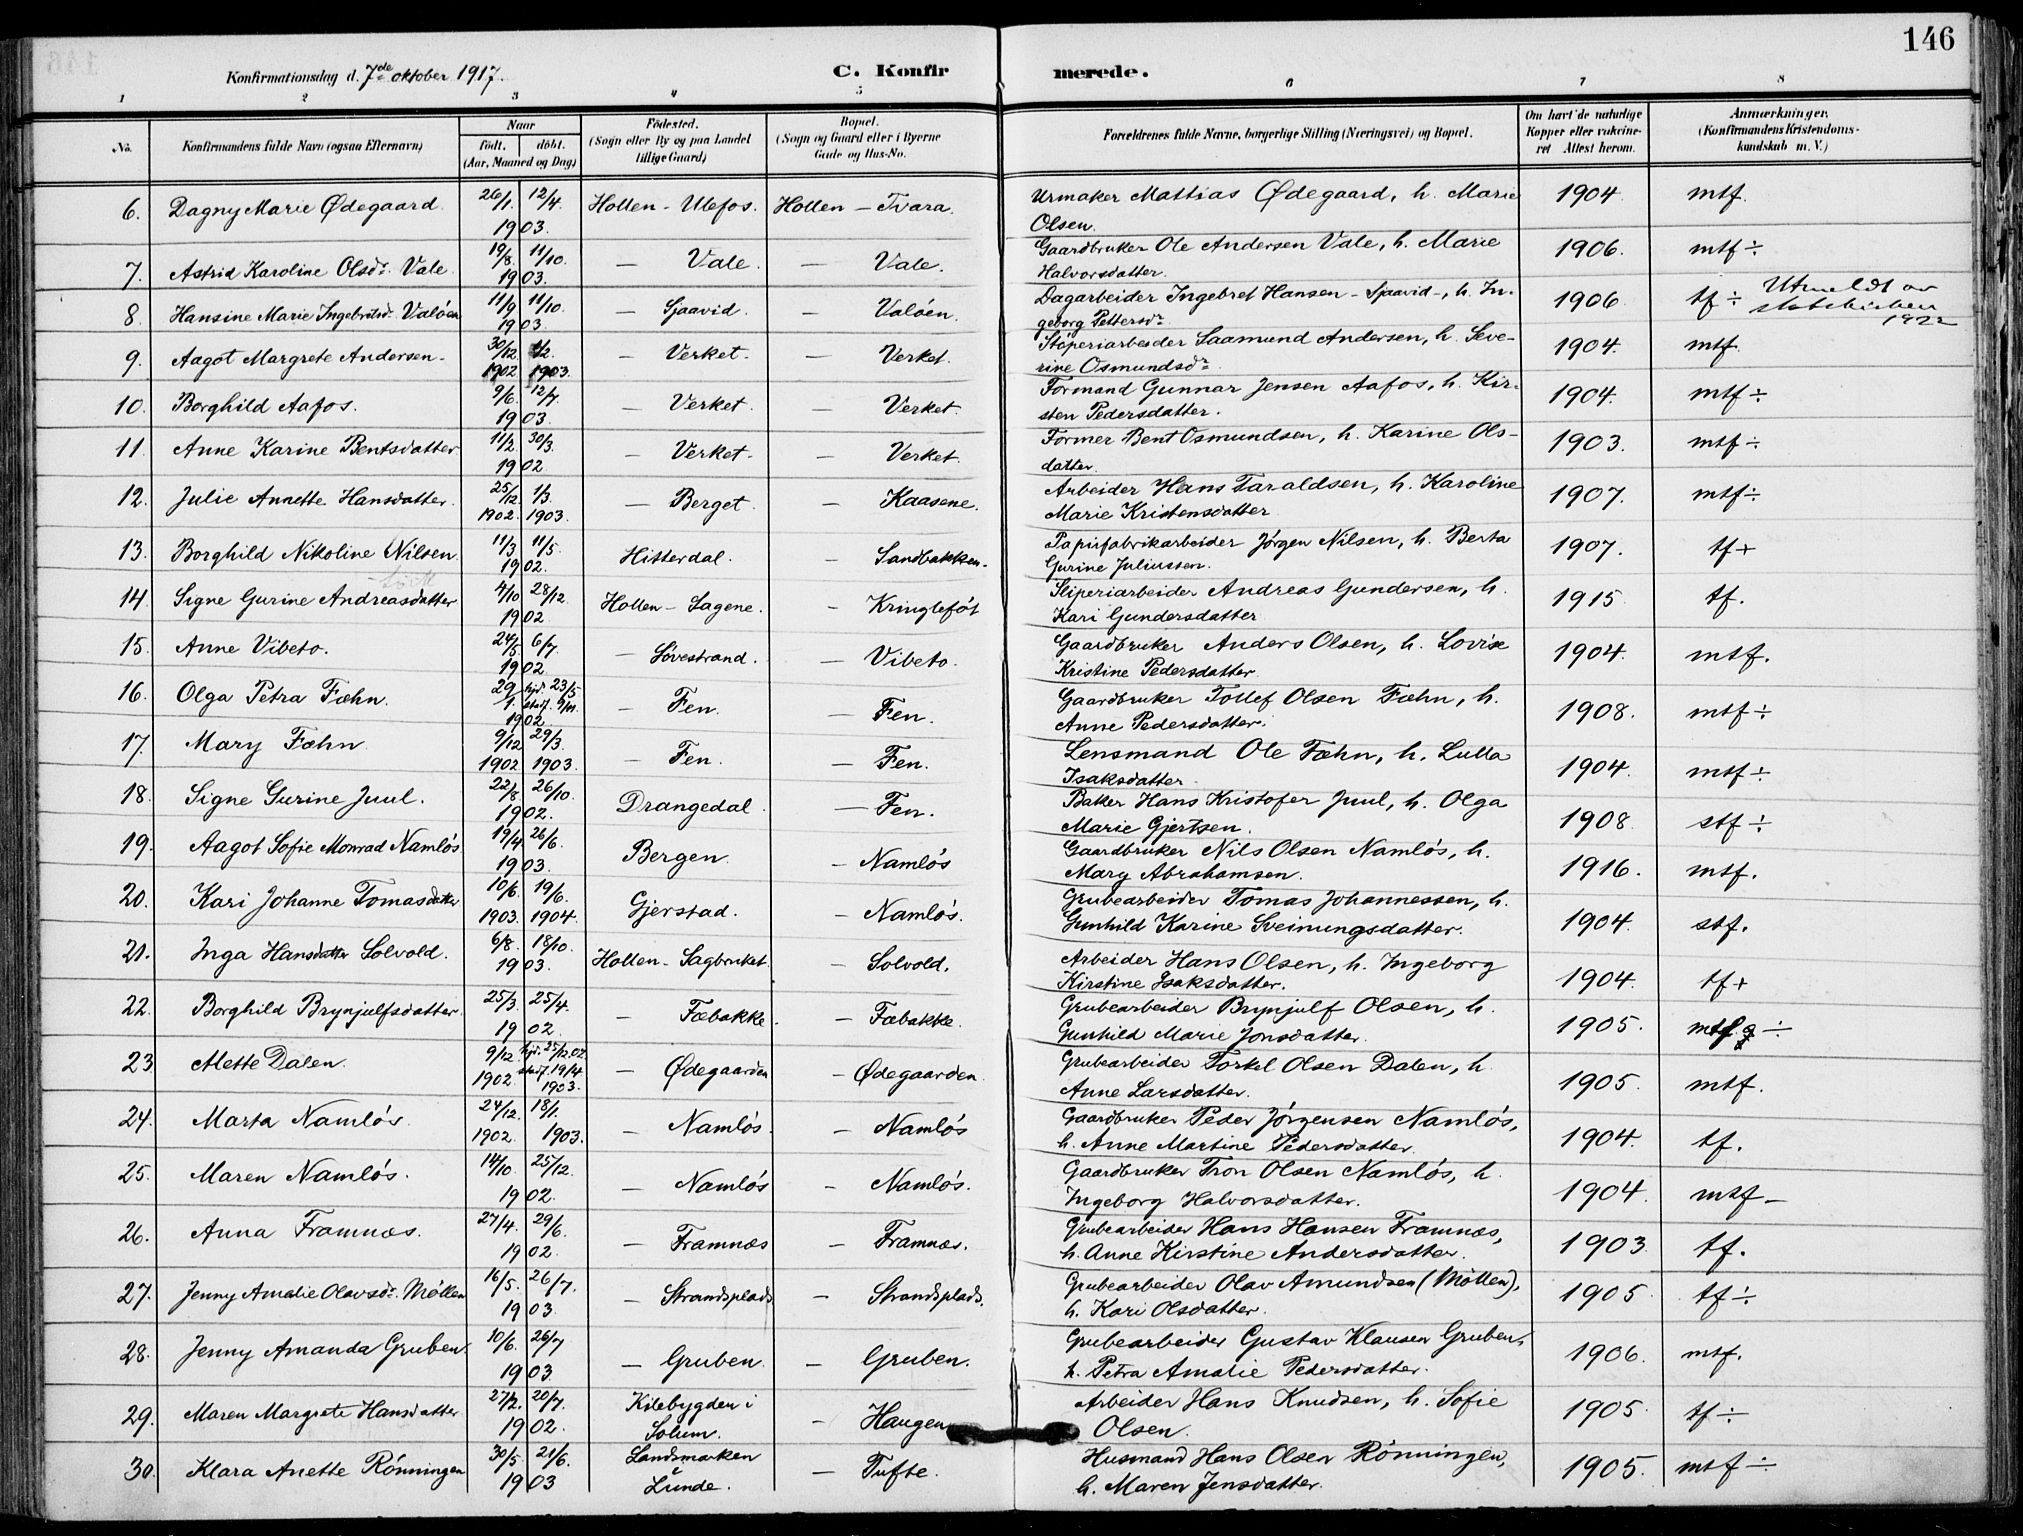 146
Konfirmationsdag d. 7de oktober 1917.
C. Konfirmerede.
1 2 3 4 5 6 7 8
No. Konfirmandens fulde Navn (ogsaa Efternavn) Naar født. døbt. (Aar, Maaned og Dag) Fødested. (Sogn eller By og paa Landet tillige Gaard) Bopæl. (Sogn og Gaard eller i Byerne Gade og Hus-No. Forældrenes fulde Navne, borgerlige Stilling (Næringsvei) og Bopæl. Om havt de naturlige Kopper eller vaksineret Attest herom. Anmærkninger. (Konfirmandens Kristendomskundskab m. V.)
6. Dagny Marie Ødegaard. 26/1. 12/4. 1903. Hollen - Ulefos. Hollen - Tvara. Urmaker Mattias Ødegaard, h. Marie Olsen. 1904 mtf.
7. Astrid Karoline Olsdr. Vale. 19/8. 11/10. 1903. — Vale. — Vale. Gaardbruker Ole Andersen Vale, h. Marie Halvorsdatter. 1906. mtf ÷
8. Hansine Marie Ingebretsdr. Valöen 11/9 11/10. 1903. — Sjaavid. — Valöen. Dagarbeider Ingebret Hansen - Sjaavid -, h. Ingeborg Pettersdr. 1906 tf ÷ Utmeldt av statskirken 1922
9. Aagot Margrete Andersen - 30/12. 1902 1903. — Verket. — Verket. Stöperiarbeider Saamund Andersen, h. Severine Osmundsdr. 1904. mtf.
10. Borghild Aafos. 9/6. 12/7. 1903. — Verket. — Verket. Formand Gunnar Jensen Aafos, h. Kirsten Pedersdatter. 1904. mtf ÷
11. Anne Karine Bentsdatter 11/2. 30/3. 1902. — Verket. — Verket. Former Bent Osmundsen, h. Karine Olsdatter. 1903. mtf ÷
12. Julie Annette Hansdatter. 25/12. 1/3. 1902. 1903. — Berget. — Kaasene. Arbeider Hans Taraldsen, h. Karoline Marie Kristensdatter 1907. mtf ÷
13. Borghild Nikoline Nilsen. 11/3 11/5. 1902. Hitterdal. — Sandbakken. Papirfabrikarbeider Jørgen Nilsen, h. Berta Gurine Juliussen. 1907. tf +
14. Signe Gurine Andreasdatter 4/10 28/12. 1902 Hollen - Sagene. — Kringleföt Sliperiarbeider Andreas Gundersen, h. Kari Gundersdatter 1915 tf.
15. Anne Vibeto. 24/5 6/7. 1902 — Sövestrand. — Vibeto. Gaardbruker Anders Olsen, h. Lovise Kristine Pedersdatter. 1904. mtf.
16. Olga Petra Fæhn. 29/1. hjd. 23/5 stadf. 9/11. 1902. — Fen. — Fen. Gaardbruker Tollef Olsen Fæhn, h. Anne Pedersdatter. 1908. mtf ÷
17. Mary Fæhn 9/12 29/3. 1902 1903. — Fen. — Fen. Lensmand Ole Fæhn, h. Lulla Isaksdatter 1904. mtf ÷
18. Signe Gurine Juul. 22/8 26/10. 1902. Drangedal. — Fen. Baker Hans Kristofer Juul, h. Olga Marie Gjertsen. 1908 stf ÷
19. Aagot Sofie Monrad Namlös 19/4 26/6. 1903. Bergen. — Namlös Gaardbruker Nils Olsen Namlös, h. Mary Abrahamsen. 1916. mtf.
20. Kari Johanne Tomasdatter 10/6. 19/6. 1903. 1904. Gjerstad. — Namlös. Grubearbeider Tomas Johannessen, h. Gunhild Karine Sveinungsdatter. 1904. stf.
21. Inga Hansdatter Solvold. 6/8. 18/10. 1903. Hollen - Sagbruket — Solvold. Arbeider Hans Olsen, h. Ingeborg Kirstine Isaksdatter. 1904. tf +
22. Borghild Brynjulfsdatter. 25/3. 25/4. 1902. — Fæbakke. — Fæbakke. Grubearbeider Brynjulf Olsen, h. Gunhild Marie Jonsdatter. 1905. mtf ÷
23. Mette Dalen. 9/12. hjd. 25/12.02. 1902. stadf. 19/4 1903. — Ødegaarden — Ødegaarden Grubearbeider Torkel Olsen Dalen, h. Anne Larsdatter. 1905. mtf.
24. Marta Namlös. 24/12. 18/1. 1902. 1903. — Namlös. — Namlös Gaardbruker Peder Jørgensen Namlös, h. Anne Martine Pedersdatter. 1904. tf.
25. Maren Namlös. 14/10. 25/12. 1902. — Namlös — Namlös. Gaardbruker Tron Olsen Namlös, h. Ingeborg Halvorsdatter. 1904. mtf -
26. Anna Framnæs. 27/4. 29/6. 1902. — Framnæs — Framnæs. Grubearbeider Hans Hansen Framnæs, h. Anne Kirstine Andersdatter. 1903 tf.
27. Jenny Amalie Olavsdr. Möllen 16/5. 26/7. 1903. — Strandsplads — Strandsplads. Grubearbeider Olav Amundsen (Möllen), h. Kari Olsdatter. 1905 tf ÷
28. Jenny Amanda Gruben. 10/6. 26/7 1903. — Gruben. — Gruben. Grubearbeider Gustav Klausen Gruben, h. Petra Amalie Pedersdatter. 1906. mtf.
29. Maren Margrete Hansdatter 27/2. 20/7. 1902. Kilebygden i Solum. — Haugen Arbeider Hans Knudsen, h. Sofie Olsen. 1905. tf ÷
30. Klara Anette Rönningen 30/5 21/6. 1903 Landsmarken Lunde. — Tufte. Husmand Hans Olsen Rönningen, h. Maren Jensdatter. 1905. mtf ÷